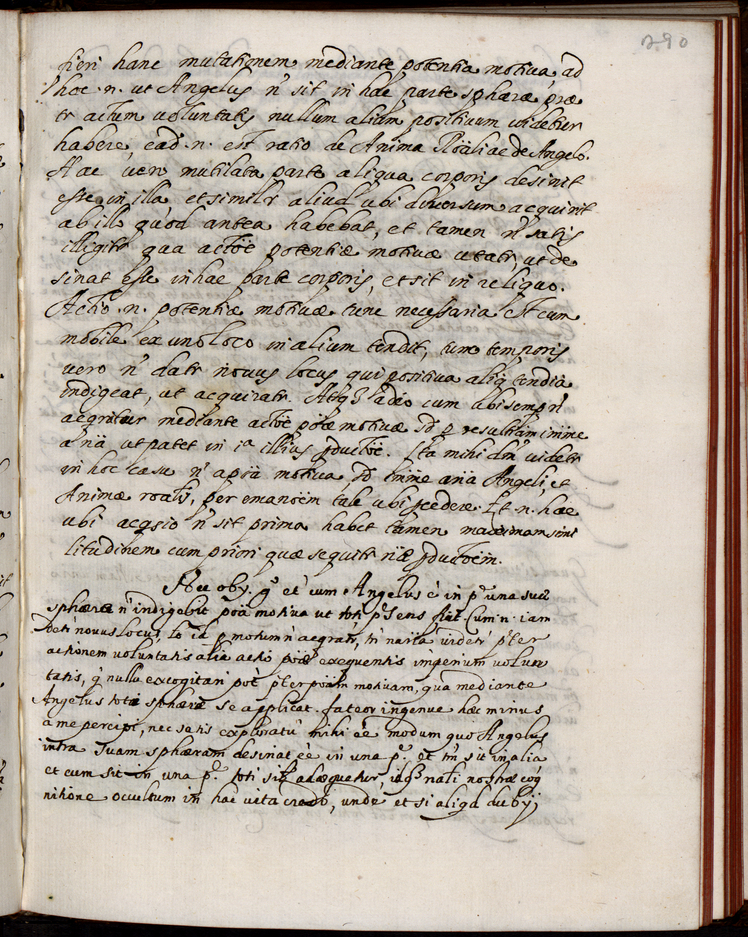 290
fieri hanc mutationem mediante potentia motiua, ad
hoc .n. ut Angelus n̄ sit in hac parte sphæræ, præ
tr actum voluntatis nullum alium positiuum uidetur
habere, ead .n. est ratio de Anima R̄oāli ac de Angelo.
Hæc uerò mutilata parte aliqua corporis desinit
esse in illa, et similr aliud ubi diuersum acquirit
ab illo quod antea habebat, et tamen n̄ satis
itr qua actōe potentiæ motiuæ utatr, ut de
sinat esse in hac parte corporis, et sit in reliquo.
Actio .n. potentiæ motiuæ tunc necessaria est cum
mobile ex uno loco in alium tendit, tunc temporis
vero n̄ datr nouus locus qui positiua aliq
indigeat, ut acquiratr. Atq3 adeo cum ubi semp n̄
acqritur mediante actōe pōæ motiuæ sed p resultām
a nā ut patet in iᵃ illius pductōe. Ita mihi dm̄ uidetr
in hoc casu n̄ a poā motiua sed ab Angeli, et
Animæ roalis, per emanōem tale ubi pcedere. Et .n. hæc
ubi acqsio n̄ sit prima habet tamen maximam simi
litudinem cum priori quæ sequitr næ pductōem.
Nec oby. q̄ et cum Angelus ē in pᵉ una suæ
sphæræ n̄ indigebit poā motiua ut toti pr̄sens fiat. Cum .n. iam
detr nouus locus, lō id p motum n̄ aqratr, tn̄ uidetr pter
actionem voluntatis alia actio poæ exequentis imperium volun
tatis, q̄ nulla excogitari pot pter poām motiuam, qua mediante
Angelus toti sphæræ se applicat. fateor ingenue hæc minus
a me percipi, nec satis exploratū mihi eē modum quo Angelus
intra suam sphæram desinat eē in una pᵉ. et tn̄ sit in alia
et cum sit in una pᵉ. toti adæquetur, nostræ cog
nitione occultum in hac uita credo, unde et si aliqd duby;